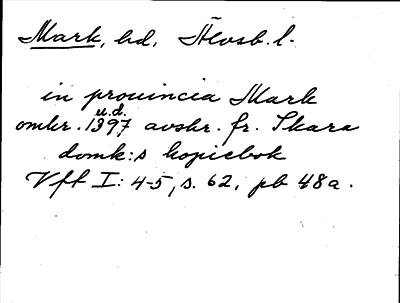 Mark, hd, Älvsb. l.
in prouincia Mark
u.d.
omkr. 1397 avskr. fr. Skara
domk:s kopiebok
Vff I: 4-5, s. 62, pb 48a.